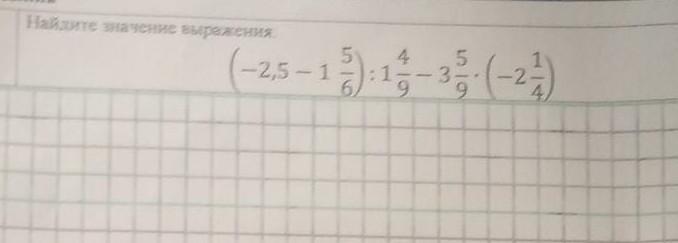 Найдите значение выражения.
(−2,5 − 1 5/6) : 1 4/9 − 3 5/9 · (−2 1/4)